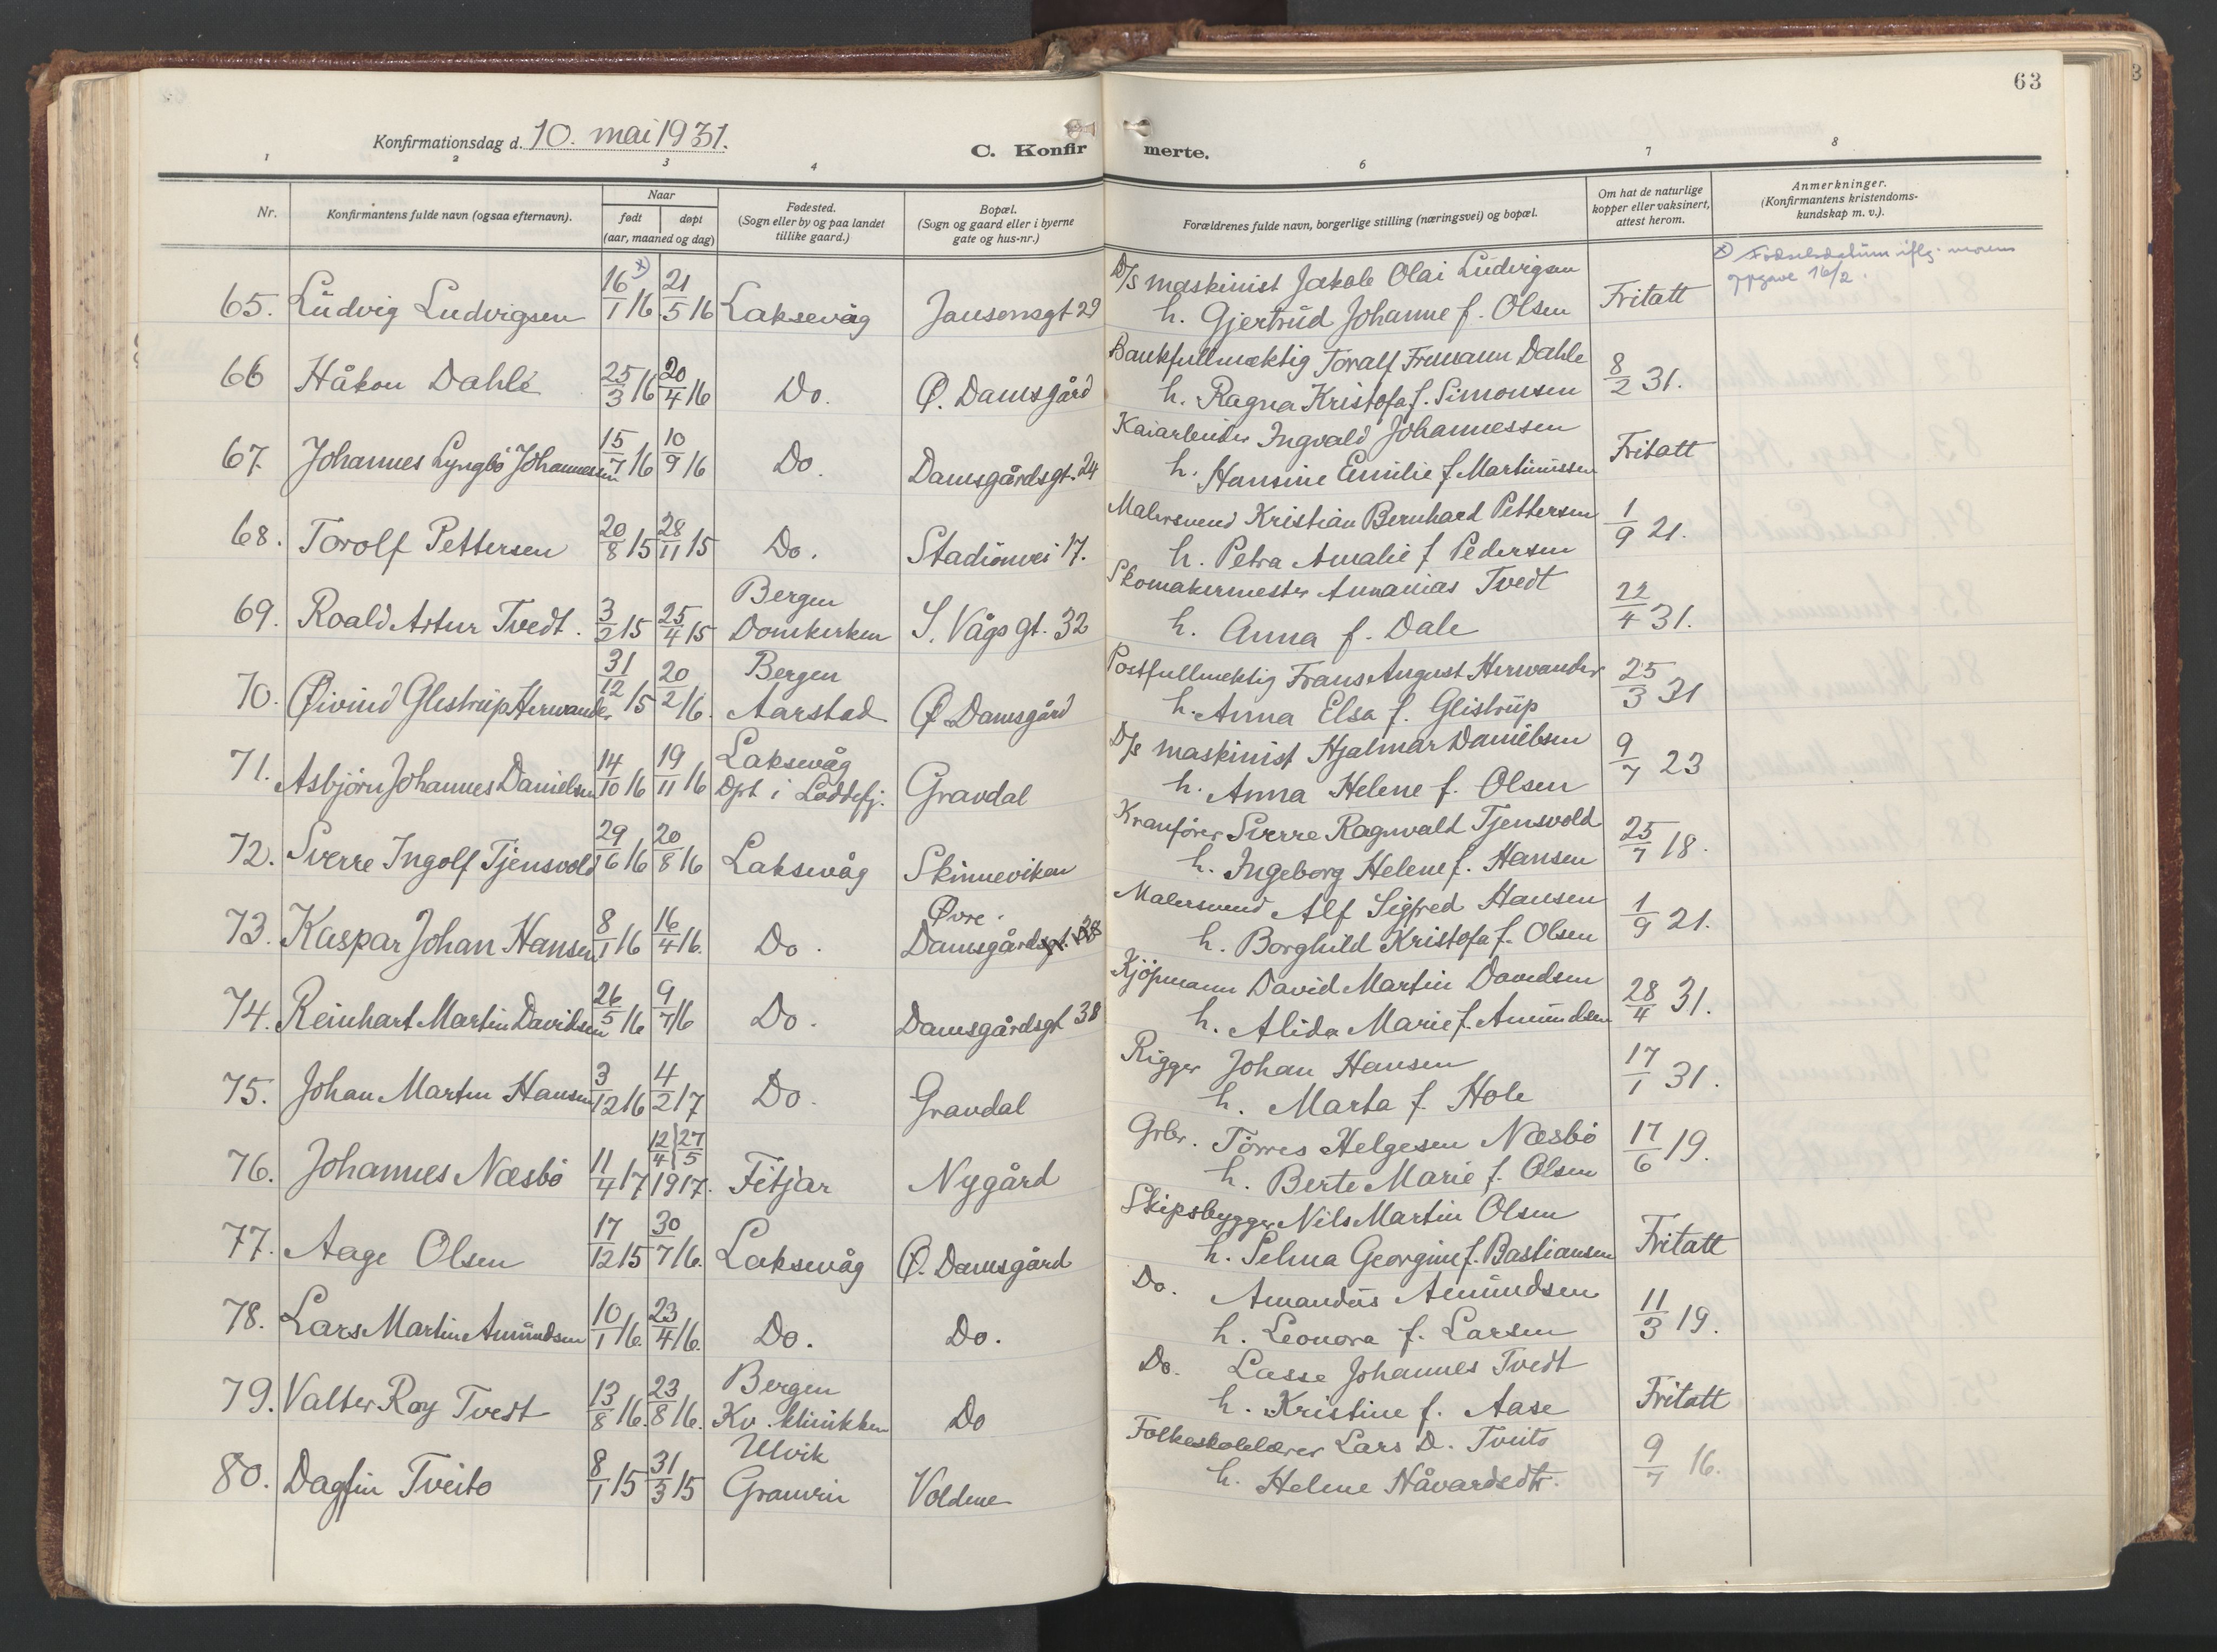 63
Konfirmationsdag d. 10. mai 1931.
C. Konfirmerte.
1 2 3 4 6 7 8
Nr. Konfirmantens fulde navn (ogsaa efternavn). Naar født døpt (aar, maaned og dag) Fødested. (Sogn eller by og paa landet tillike gaard.) Bopæl. (Sogn og gaard eller i byerne gate og hus-nr.) Forældrenes fulde navn, borgerlige stilling (næringsvei) og bopæl. Om hat de naturlige kopper eller vaksinert, attest herom. Anmerkninger. (Konfirmantens kristendomskundskap m. v.).
x) Fødselsdatum iflg. morens
oppgave 16/2.
65. Ludvig Ludvigsen 16/1 16 x) 21/5 16 Laksevåg Jansonsgt 29 D/s maskinist Jakob Olai Ludvigsen
h. Gjertrud Johanne f. Olsen Fritatt
66 Håkon Dahle 25/3 16 20/4 16 Do. Ø. Damsgård Bankfullmektig Toralf Fremann Dahle
h. Ragna Kristofa f. Simonsen 8/2 31.
67. Johannes Lyngbö Johannessen 15/7 16 10/9 16 Do. Damsgårdsgt. 24 Kaiarbeider Ingvald Johannessen
h. Hansine Emilie f. Martinussen Fritatt
68. Torolf Pettersen 20/8 15 28/11 15 Do. Stadionvei 17. Malersvend Kristian Bernhard Pettersen
h. Petra Amalie f. Pedersen 1/9 21.
69. Roald Artur Tvedt. 3/2 15 25/4 15 Bergen
Domkirken S. Vågs gt. 32 Skomakermester Annanias Tvedt
h. Anna f. Dale 22/4 31.
70. Øivind Glistrup Herwander 31/12 15 20/2 16. Bergen
Aarstad Ø. Damsgård Postfullmektig Frans August Herwander
h. Anna Elsa f. Glistrup 25/3 31
71. Asbjörn Johannes Danielsen 14/10 16 19/11 16 Laksevåg
Döpt i Loddefj. Gravdal D/s maskinist Hjalmar Danielsen
h. Anna Helene f. Olsen 9/7 23
72. Sverre Ingolf Tjensvold 29/6 16 20/8 16 Laksevåg Skinneviken Kranförer Sverre Ragnvald Tjensvold
h. Ingeborg Helene f. Hansen 25/7 18.
73. Kaspar Johan Hansen 8/1 16 16/4 16. Do. Øvre
Damsgårdsgt. 38 Malersvend Alf Sigfred Hansen
h. Borghild Kristofa f. Olsen 1/9 21.
74. Reinhart Martin Davidsen 26/5 16 9/7 16 Do. Damsgårdsgt 38 Kjöpmann David Martin Davidsen
h. Alida Marie f. Amundsen 28/4 31.
75. Johan Martin Hansen 3/12 16 4/2 17 Do. Gravdal Rigger Johan Hansen
h. Marta f. Hole 17/1 31.
76. Johannes Næsbö 11/4 17 12/4 27/5 1917. Fitjar Nygård Grbr. Törres Helgesen Næsbö
h. Berte Marie f. Olsen 17/6 19.
77. Aage Olsen 17/12 15 30/7 16. Laksevåg Ø. Damsgård Skipsbygger Nils Martin Olsen
h. Selma Georgine f. Bastiansen Fritatt
78. Lars Martin Amundsen 10/1 16. 23/4 16. Do. Do. Do. Amandus Amundsen
h. Leonora f. Larsen 11/3 19.
79. Valter Roy Tvedt 13/8 16. 23/8 16. Bergen
Kv. klinikken Do Do. Lasse Johannes Tvedt
h. Kristine f. Aase Fritatt
80. Dagfin Tveito 8/1 15 31/3 15 Ulvik
Granvin Voldene Folkeskolelærer Lars D. Tveito
h. Helene Håvardsdtr. 9/7 16.